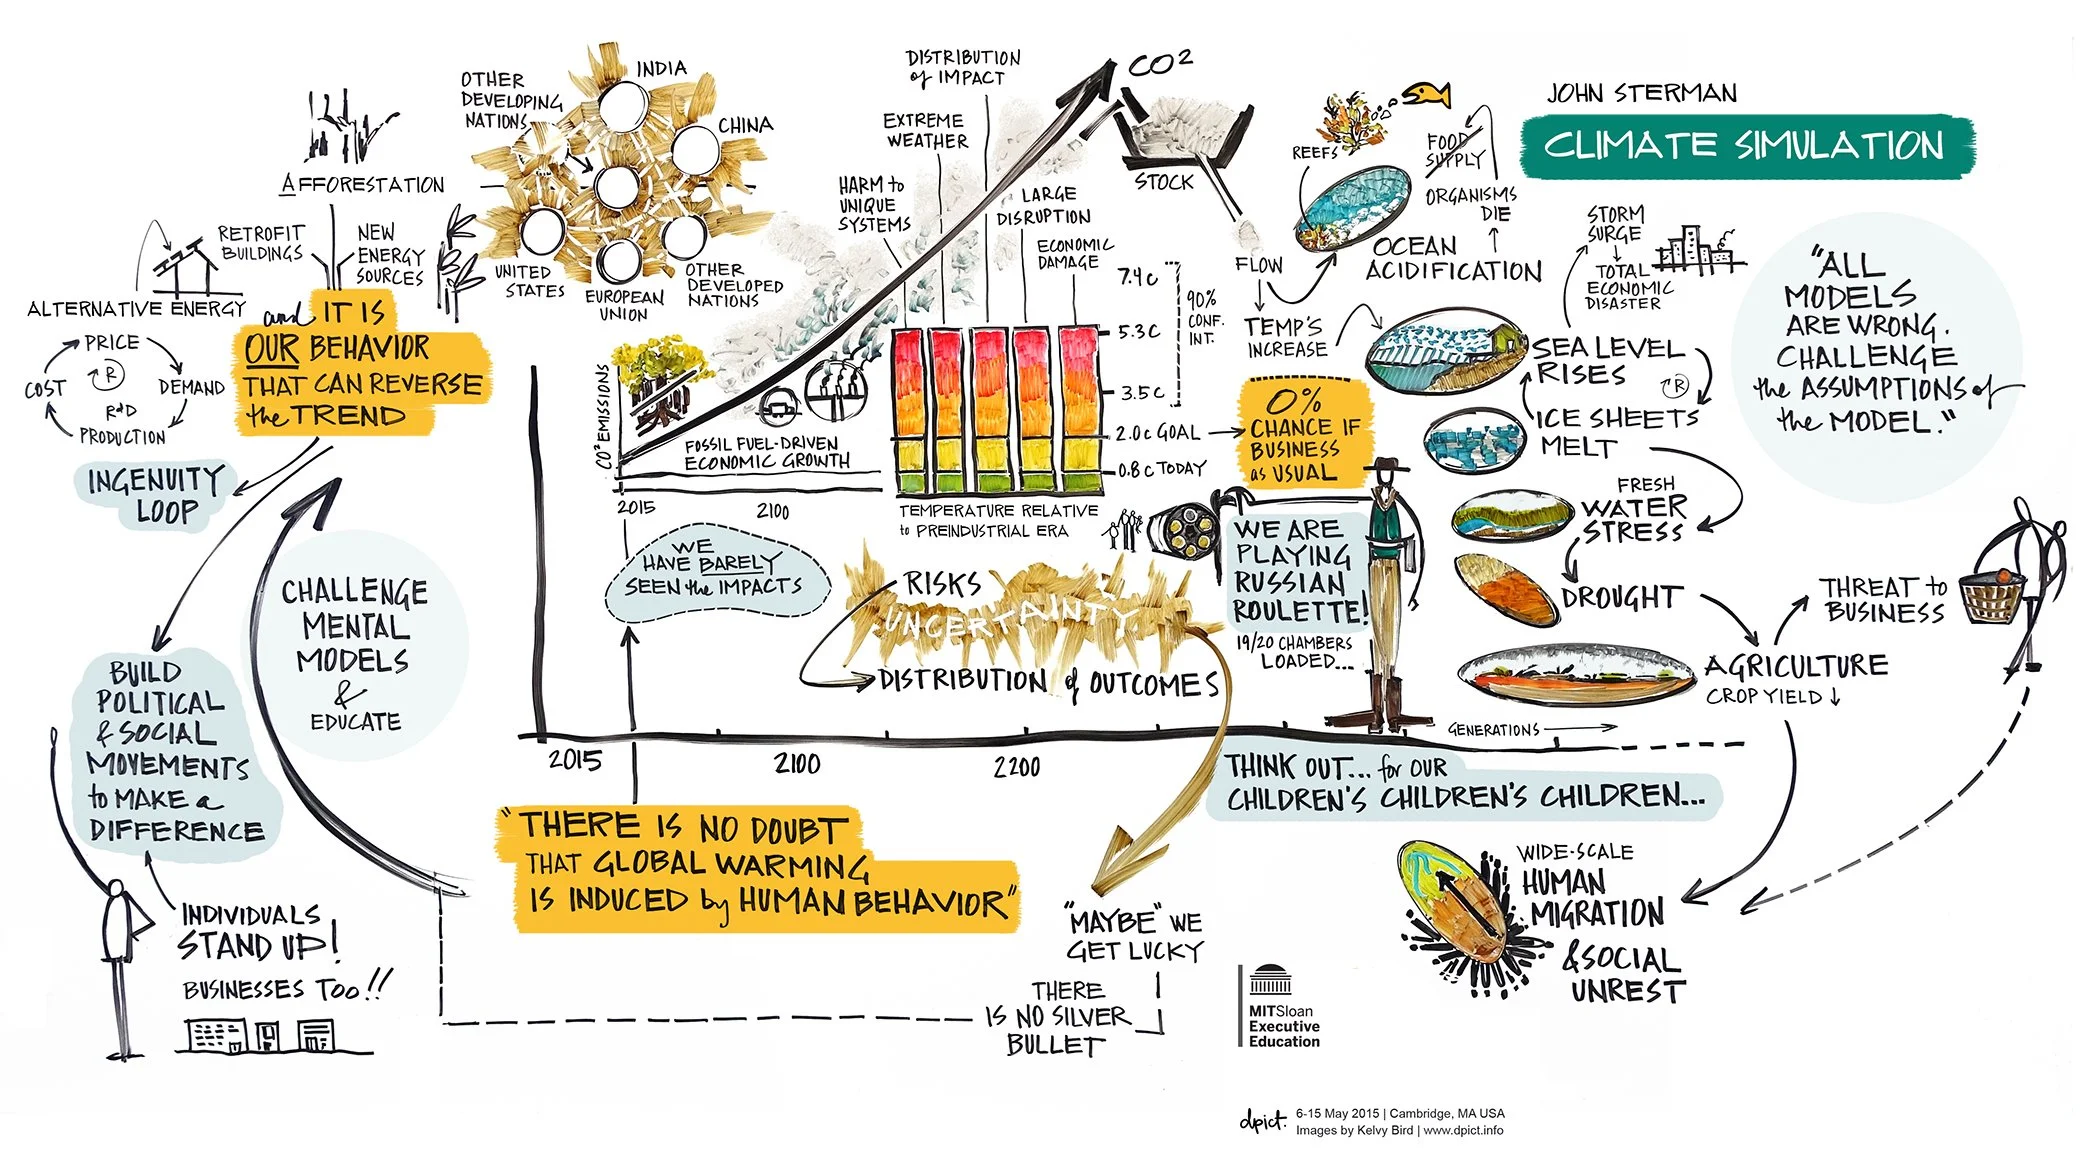 JOHN STERMAN
CLIMATE SIMULATION
"ALL
MODELS
ARE WRONG.
CHALLENGE
the ASSUMPTIONS of
the MODEL."
AFFORESTATION
RETROFIT
BUILDINGS
NEW
ENERGY
SOURCES
ALTERNATIVE ENERGY
PRICE
DEMAND
PRODUCTION
COST
R
R&D
INGENUITY
LOOP
and IT IS
OUR BEHAVIOR
THAT CAN REVERSE
the TREND
OTHER
DEVELOPING
NATIONS
INDIA
CHINA
UNITED
STATES
EUROPEAN
UNION
OTHER
DEVELOPED
NATIONS
CO2 EMISSIONS
FOSSIL FUEL-DRIVEN
ECONOMIC GROWTH
2015
2100
WE
HAVE BARELY
SEEN the IMPACTS
HARM to
UNIQUE
SYSTEMS
EXTREME
WEATHER
DISTRIBUTION
of IMPACT
LARGE
DISRUPTION
ECONOMIC
DAMAGE
7.4C
5.3C
3.5C
2.0C GOAL
0.8C TODAY
90%
CONF.
INT.
TEMPERATURE RELATIVE
to PREINDUSTRIAL ERA
0%
CHANCE IF
BUSINESS
as USUAL
CO2
STOCK
FLOW
TEMP'S
INCREASE
REEFS
FOOD
SUPPLY
ORGANISMS
DIE
OCEAN
ACIDIFICATION
STORM
SURGE
TOTAL
ECONOMIC
DISASTER
SEA LEVEL
RISES
R
ICE SHEETS
MELT
FRESH
WATER
STRESS
DROUGHT
AGRICULTURE
CROP YIELD ↓
THREAT to
BUSINESS
WE ARE
PLAYING
RUSSIAN
ROULETTE!
19/20 CHAMBERS
LOADED...
RISKS
UNCERTAINTY
DISTRIBUTION of OUTCOMES
GENERATIONS
2015
2100
2200
THINK OUT... for OUR
CHILDREN'S CHILDREN'S CHILDREN...
WIDE-SCALE
HUMAN
MIGRATION
& SOCIAL
UNREST
"THERE IS NO DOUBT
THAT GLOBAL WARMING
IS INDUCED by HUMAN BEHAVIOR"
"MAYBE" WE
GET LUCKY
THERE
IS NO SILVER
BULLET
CHALLENGE
MENTAL
MODELS
&
EDUCATE
BUILD
POLITICAL
& SOCIAL
MOVEMENTS
to MAKE a
DIFFERENCE
INDIVIDUALS
STAND UP!
BUSINESSES TOO!!
MITSloan
Executive
Education
dpict.
6-15 May 2015 | Cambridge, MA USA
Images by Kelvy Bird | www.dpict.info